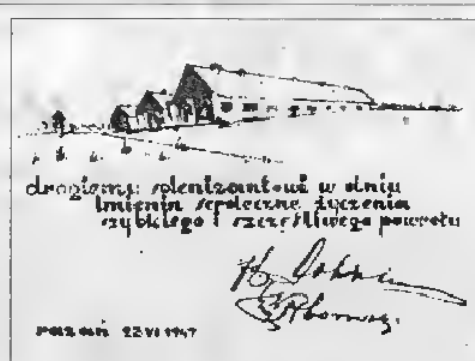 drogiemu solenizantowi w dniu
imienin serdeczne życzenia
szybkiego i szczęśliwego powrotu
poznań 22 VI 1947